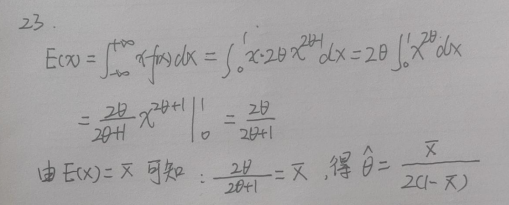 23.
E(x) = ∫_{-∞}^{+∞} x f(x) dx = ∫_0^1 x·2θ x^{2θ-1} dx = 2θ ∫_0^1 x^{2θ} dx
= \frac{2θ}{2θ+1} x^{2θ+1} |_0^1 = \frac{2θ}{2θ+1}
由 E(x) = x̄ 可知 : \frac{2θ}{2θ+1} = x̄ , 得 θ̂ = \frac{x̄}{2(1-x̄)}